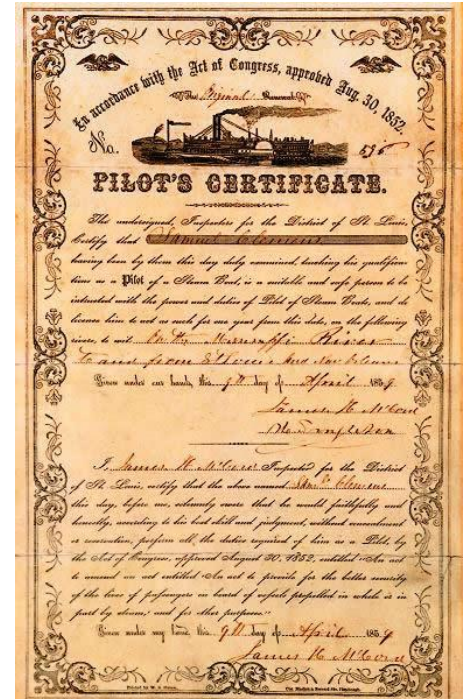 In accordance with the Act of Congress, approved Aug. 30, 1852.
The Original
No.
PILOT'S CERTIFICATE.
The undersigned, Inspectors for the District of St Louis,
Certify that Samuel Clemens
having been by them this day duly examined, touching his qualifica-
tions as a Pilot of a Steam Boat, is a suitable and safe person to be
intrusted with the power and duties of Pilot of Steam Boats, and do
license him to act as such for one year from this date, on the following
rivers, to wit On the Mississippi River
to and from St Louis and New Orleans
Given under our hands, this 9th day of April 1859
James H McCord
I, James H McCord Inspector for the District
of St. Louis, certify that the above named Clemens
this day, before me, solemnly swore that he would faithfully and
honestly, according to his best skill and judgment, without concealment
or reservation, perform all the duties required of him as a Pilot, by
the Act of Congress, approved August 30, 1852, entitled "An act
to amend an act entitled 'An act to provide for the better security
of the lives of passengers on board of vessels propelled in whole or in
part by steam,' and for other purposes."
Given under my hand, this 9th day of April 1859
James H McCord